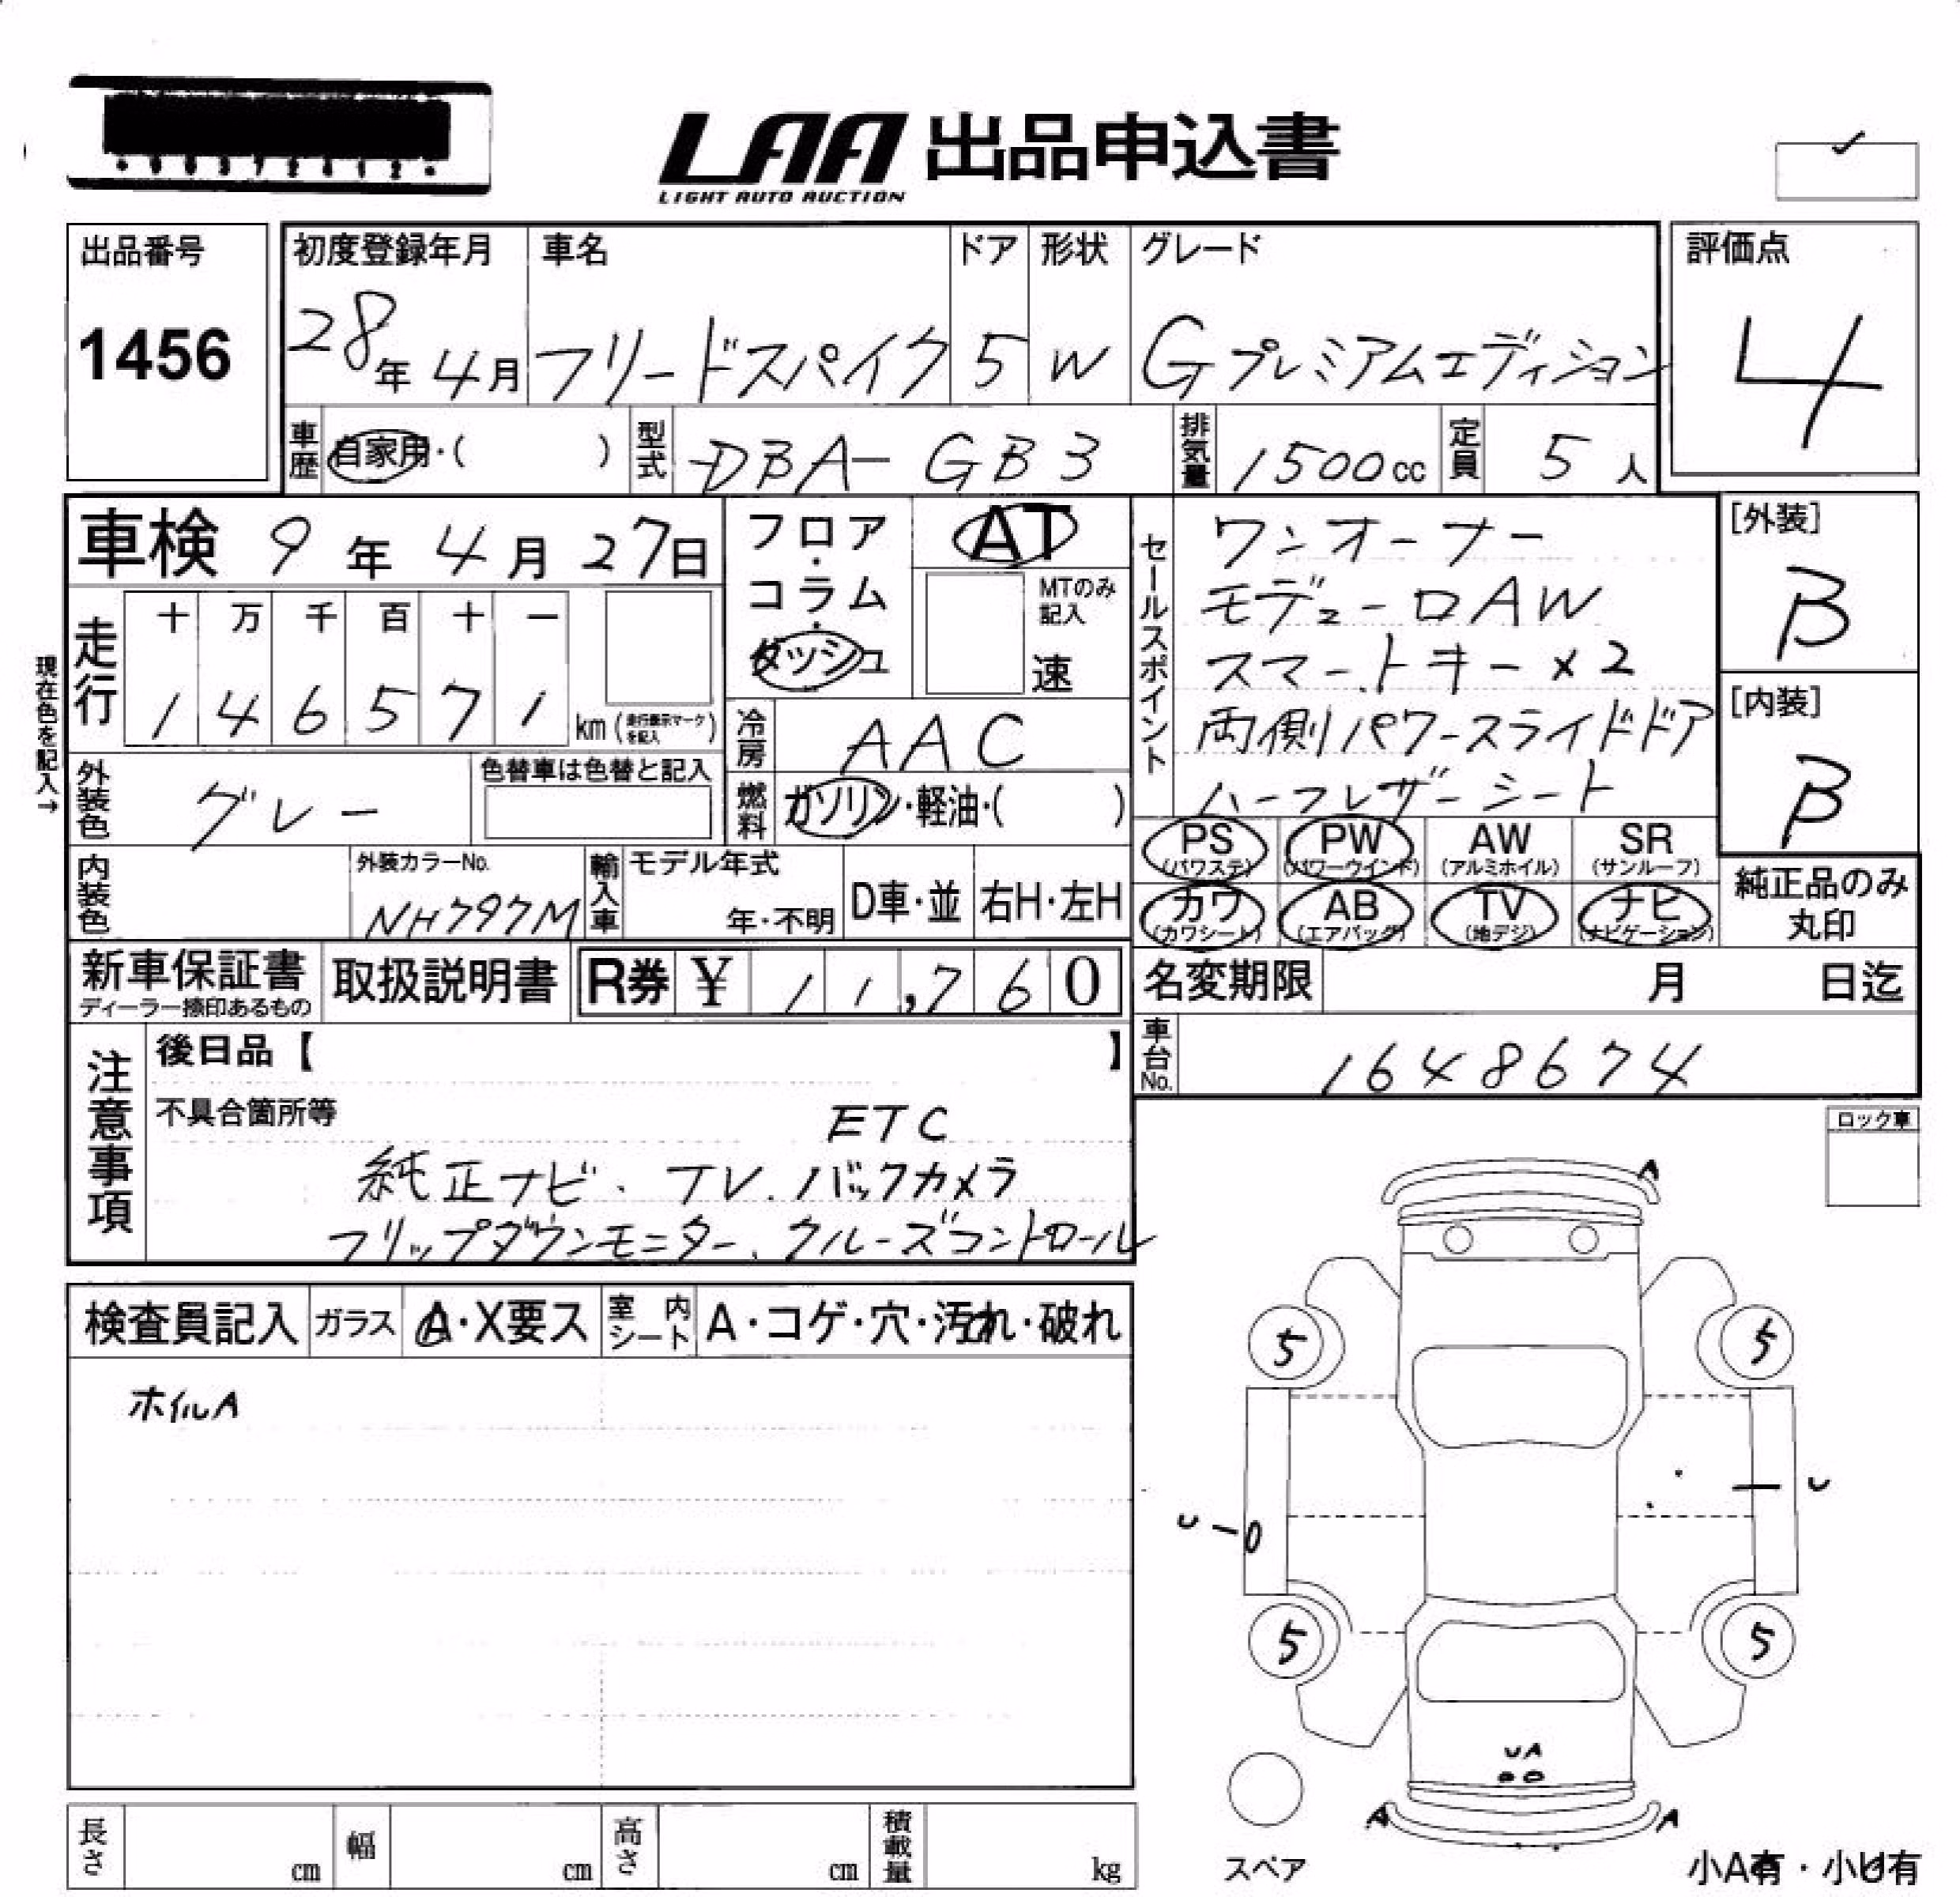 LAA 出品申込書
LIGHT AUTO AUCTION
出品番号
1456
初度登録年月
28年 4月
車名
フリードスパイク
ドア
5
形状
W
グレード
Gプレミアムエディション
評価点
4
車歴 自家用・( )
型式 DBA-GB3
排気量 1500cc
定員 5人
車検 9年 4月 27日
フロア・コラム・ダッシュ
AT
MTのみ記入
速
走行
十 万 千 百 十 一
1 4 6 5 7 1 km (走行表示マークを記入)
現在色を記入→
外装色 グレー
色替車は色替と記入
冷房 AAC
燃料 ガソリン・軽油・( )
内装色
外装カラーNo.
NH797M
輸入車 モデル年式
年・不明
D車・並
右H・左H
セールスポイント
ワンオーナー
モデューロAW
スマートキー×2
両側パワースライドドア
ハーフレザーシート
[外装]
B
[内装]
B
PS (パワステ)
PW (パワーウインド)
AW (アルミホイル)
SR (サンルーフ)
カワ (カワシート)
AB (エアバッグ)
TV (地デジ)
ナビ (ナビゲーション)
純正品のみ
丸印
新車保証書
ディーラー捺印あるもの
取扱説明書
R券 ¥ 11,760
名変期限 月 日迄
車台No. 1648674
注意事項
後日品【 】
不具合箇所等
ETC
純正ナビ・TV.バックカメラ
フリップダウンモニター、クルーズコントロール
ロック車
検査員記入
ガラス A・X要ス
室内シート A・コゲ・穴・汚れ・破れ
ホイルA
A
5 5
U
U
5 5
UA
A A
スペア
小A有・小U有
長さ cm
幅 cm
高さ cm
積載量 kg